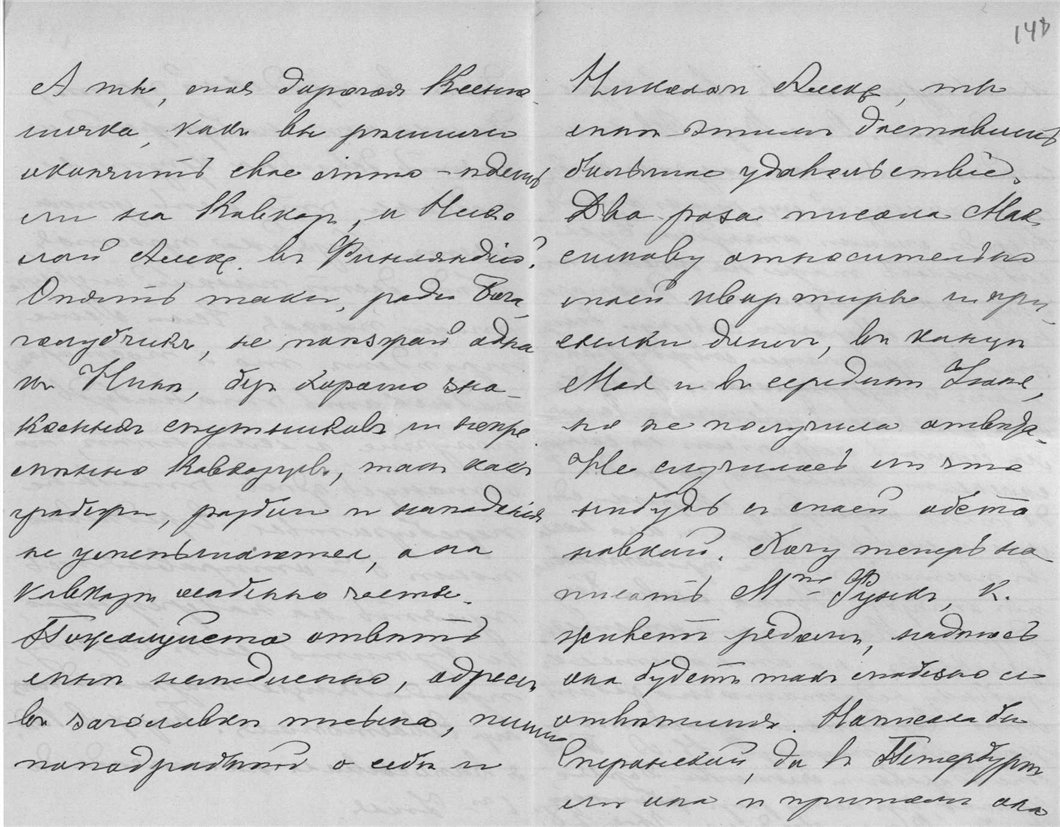 А ты, моя дорогая Ксенью-
шечка, какъ вы рѣшили
окончить свое лѣто – ѣдешь
ли на Кавказъ, а Нико
лай Алекс. въ Финляндію?
Опять таки, ради Бога,
голубчикъ, не поѣзжай одна
съ Ниной, безъ хорошо зна-
комыхъ спутниковъ и непре
мѣнно Кавказцевъ, такъ какъ
грабежи, разбои и нападенія
не уменьшаются, а на
Кавказѣ особенно часты.
Пожалуйста отвѣть
мнѣ немедленно, адресъ
въ заголовкѣ письма, пиши
поподробнѣй о себѣ и
148
Николаѣ Алекс, ты
мнѣ этимъ доставишь
большое удовольствіе.
Два раза писала Мак
симову относительно
моей квартиры и при
сылки денегъ, въ концѣ
Мая и въ серединѣ Іюня,
но не получила отвѣта.
Не случилось ли что
нибудь съ моей обста
новкой. Хочу теперь на
писать Mme Функъ, к.
живетъ рядомъ, надѣюсь
она будетъ такъ любезна и
отвѣтитъ. Написала бы
Сперанской, да въ Петербургѣ
ли она и притомъ она